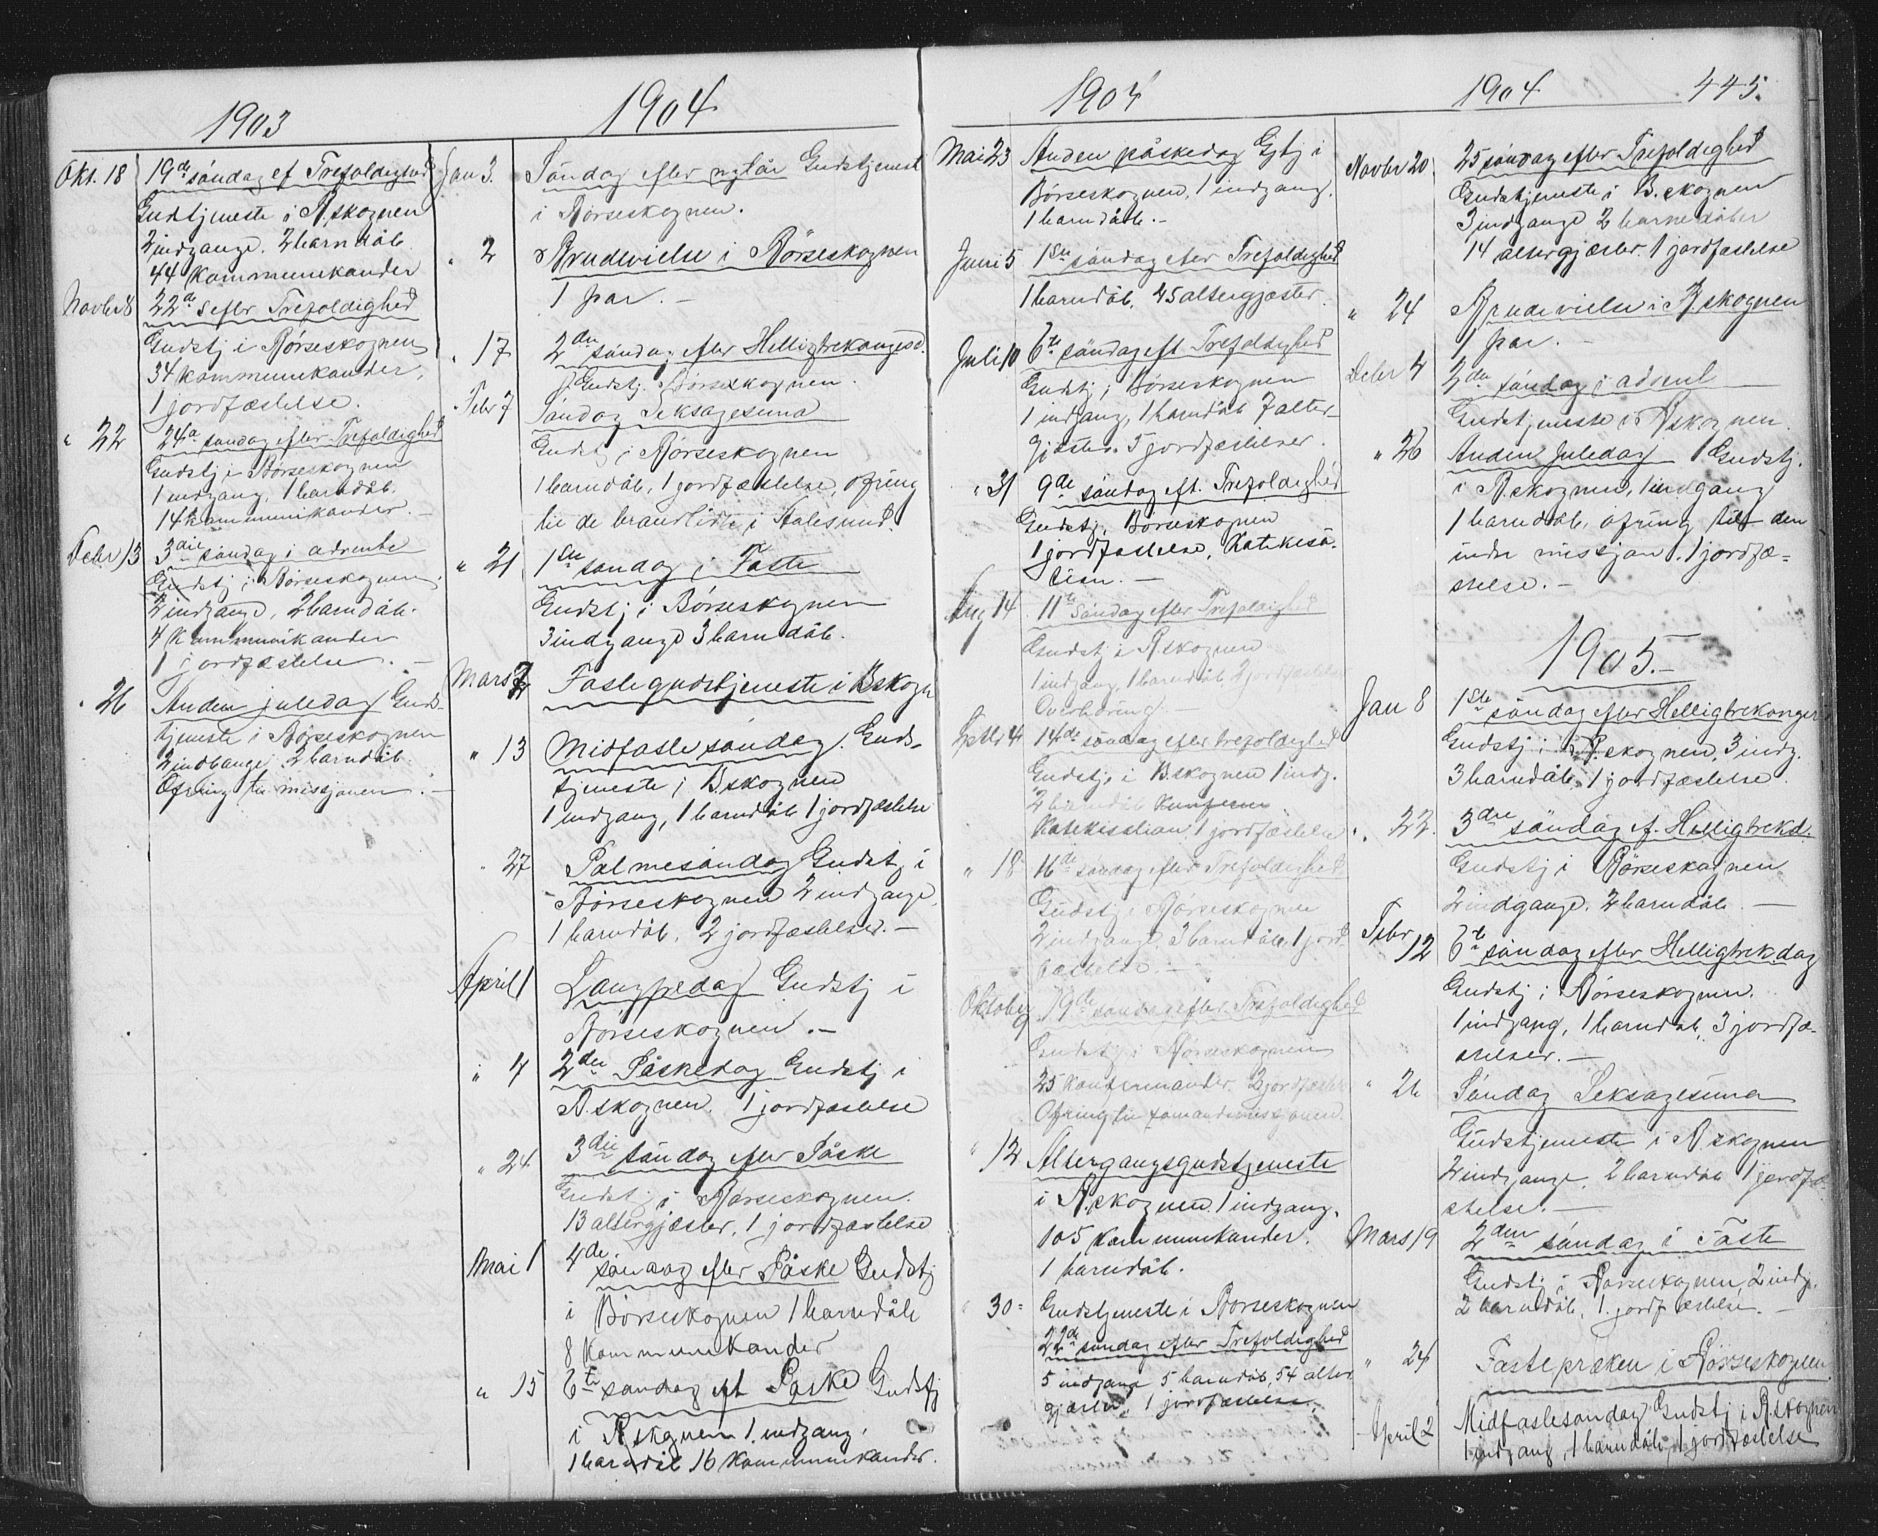 1903
Okt. 18 19de söndag ef Trefoldighed
Gudstjeneste i B.skognen
2 indgange. 2 barndåb.
44 kommunikander
Novber 8 22de s efter Trefoldighed
Gudstj i Börseskognen
34 kommunikander,
1 jordfæstelse.
" 22 24de söndag efter Trefoldighed
Gudstj i Börseskognen
1 indgang, 1 barndåb.
14 kommunikander. —
Debr 13 3die söndag i advente
Gudstj i Börseskognen,
2 indgange, 2 barndåb.
4 kommunikander
1 jordfæstelse. —
" 26 Anden juledag Guds-
tjeneste i Börseskognen
2 indgange 2 barndåb.
Ofring til missjonen. —
1904
Jan 3. Söndag efter nytår Gudstjenest
i Börseskognen.
" 2 Brudevielse i Börseskognen
1 par. —
" 17 2den söndag efter Helligtrekongersd.
Gudstj. Börseskognen.
Febr 7 Söndag Seksagesima
Gudstj i Börseskognen
1 barndåb, 1 jordfæstelse, ofring
til de brandlidte i Aalesund.
" 21 1ste söndag i Faste
Gudstj i Börseskognen
3 indgange 3 barndåb.
Mars Fastegudstjeneste i B.skogn
" 13 Midfastesöndag. Guds-
tjeneste i B.skognen
1 indgang, 1 barndåb 1 jordfæstelse
" 27 Palmesöndag Gudstj i
Börseskognen 2 indgange
1 barndåb, 2 jordfæstelser. —
April 1 Langfredag Gudstj i
Börseskognen. —
" 4 2den Påskedag Gudstj i
B.skognen. 1 jordfæstelse
" 24 3die söndag efter Påske
Gudstj i Börseskognen.
13 altergjæster, 1 jordfæstelse
Mai 1 4de söndag efter Påske Gudstj
i Börseskognen 1 barndåb
8 kommunikander
" 15 6te söndag eft Påske Gudstj
i B.skognen 1 indgang,
1 barndåb 16 kommunikander.
1904
Mai 23 Anden påskedag Gstj i
Börseskognen, 1 indgang.
1 barndåb. —
Juni 5 1ste söndag efter Trefoldighed
1 barndåb, 45 altergjæster.
Juli 10 6te söndag eft Trefoldighed
Gudstj i Börseskognen
1 indgang, 1 barndåb 7 alter-
gjæster. 3 jordfæstelser.
" 31 9de söndag eft. Trefoldighed
Gudstj. Börseskognen
1 jordfæstelse, Katekisa-
tion. —
Aug 14 11te söndag efter Trefoldighed
Gudstj i B.skognen
1 indgang, 1 barndåb 2 jordfæstelser
Overhöring —
Septbr 4 14de söndag efter trefoldighed
Gudstj. i B.skognen 1 indg.
2 barndåb
Katekisation 1 jordfæstelse
" 18 16de söndag efter Trefoldighed
Gudstj i Börseskognen
2 indgange, 3 barndåb, 1 jord
fæstelse. —
Oktober 9 19de söndag efter Trefoldighed
Gudstj i Börseskognen
25 konfirmander 2 jordfæstelser
Ofring til
" 12 Altergangsgudstjeneste
i B.skognen. 1 indgang.
105 kommunikander.
1 barndåb.
" 30 Gudstjeneste i Börseskognen
22de söndag efter Trefoldighed
5 indgange 5 barndåb, 54 alter
gjæster, 1 jordfæstelse,
1904 445.
Novber 20. 25 söndag efter Trefoldighed
Gudstjeneste i B.skognen
3 indgange 2 barnedåber
14 altergjæster. 1 jordfæstelse
" 24 Brudevielse i B.skognen
1 par. —
Debr 4 2den söndag i advent
Gudstjeneste i B.skognen.
" 26 Anden Juledag Gudstj.
i B.skognen, 1 indgang
1 barndåb, ofring til den
indre missjon. 1 jordfæ-
stelse. —
1905. —
Jan 8 1ste söndag efter Helligtrekonger
Gudstj i B.skognen, 3 indg.
3 barndåb. 1 jordfæstelse.
" 22. 3die söndag ef. Helligtrekd.
Gudstj i Börseskognen
2 indgange. 2 barndåb. —
Febr 12 6te söndag efter Helligtrekdag
Gudstj i Börseskognen.
1 indgang, 1 barndåb, 3 jordfæ-
stelser. —
" 26 Söndag Seksagesima
Gudstjeneste i B.skognen
2 indgange. 2 barndåb 1 jordfæ
stelse. —
Mars 19 2den söndag i Faste
Gudstj i Börseskognen 2 indg.
2 barndåb, 1 jordfæstelse. —
" 24 Fastepræken i Börseskognen
April 2 Midfastesöndag Gudstj i B.skognen
1 indgang, 1 barndåb, 1 jordfæstelse